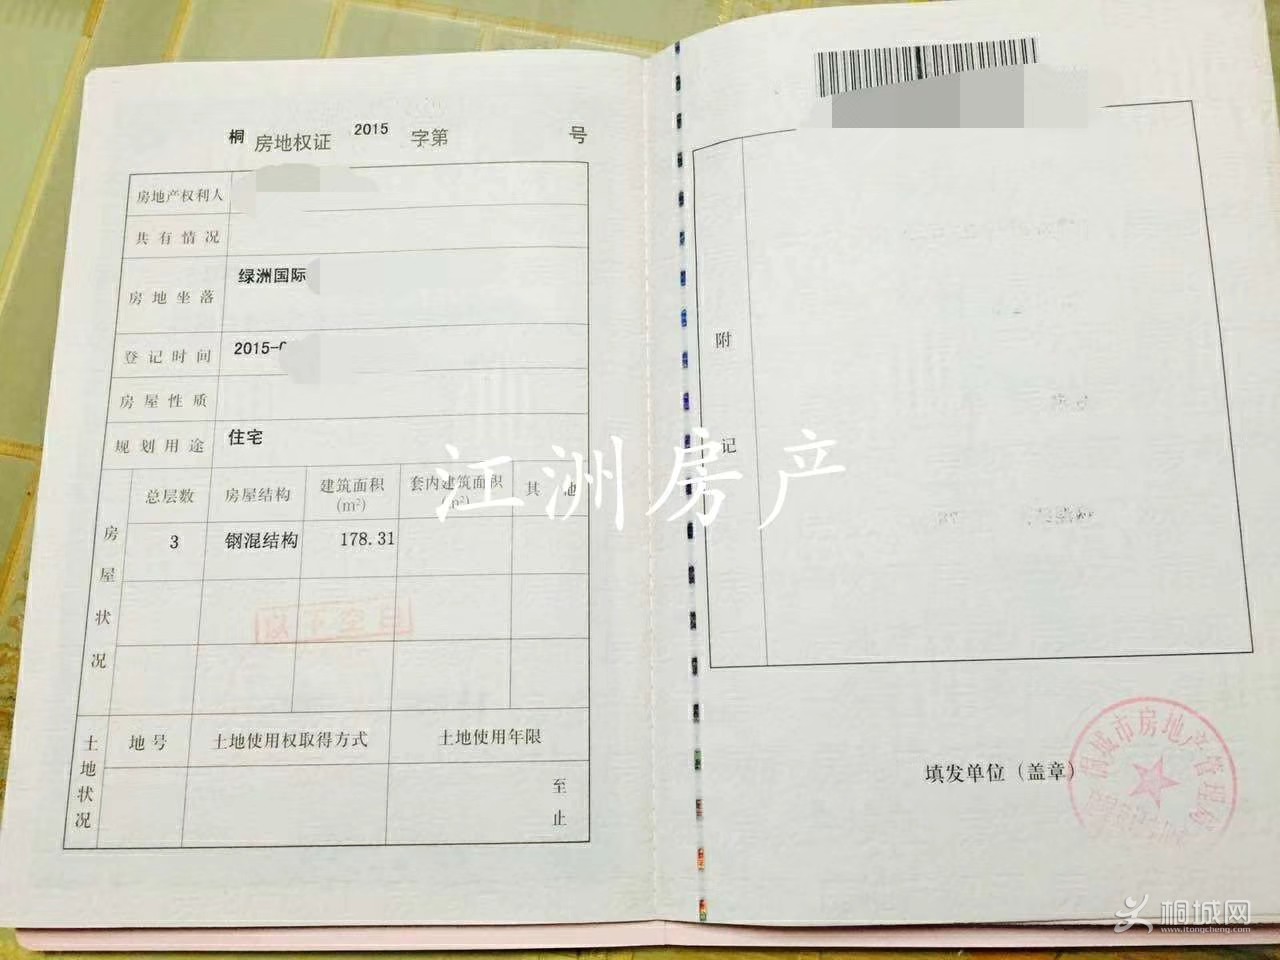 桐 房地权证 2015 字第 号
房地产权利人
共有情况
房地坐落 绿洲国际
登记时间 2015-0
房屋性质
规划用途 住宅
房屋状况
总层数 房屋结构 建筑面积(m²) 套内建筑面积(m²) 其他
3 钢混结构 178.31
以下空白
土地状况
地号 土地使用权取得方式 土地使用年限
至
止
附记
填发单位（盖章）
桐城市房地产管理局
江洲房产
桐城网
www.itongcheng.com